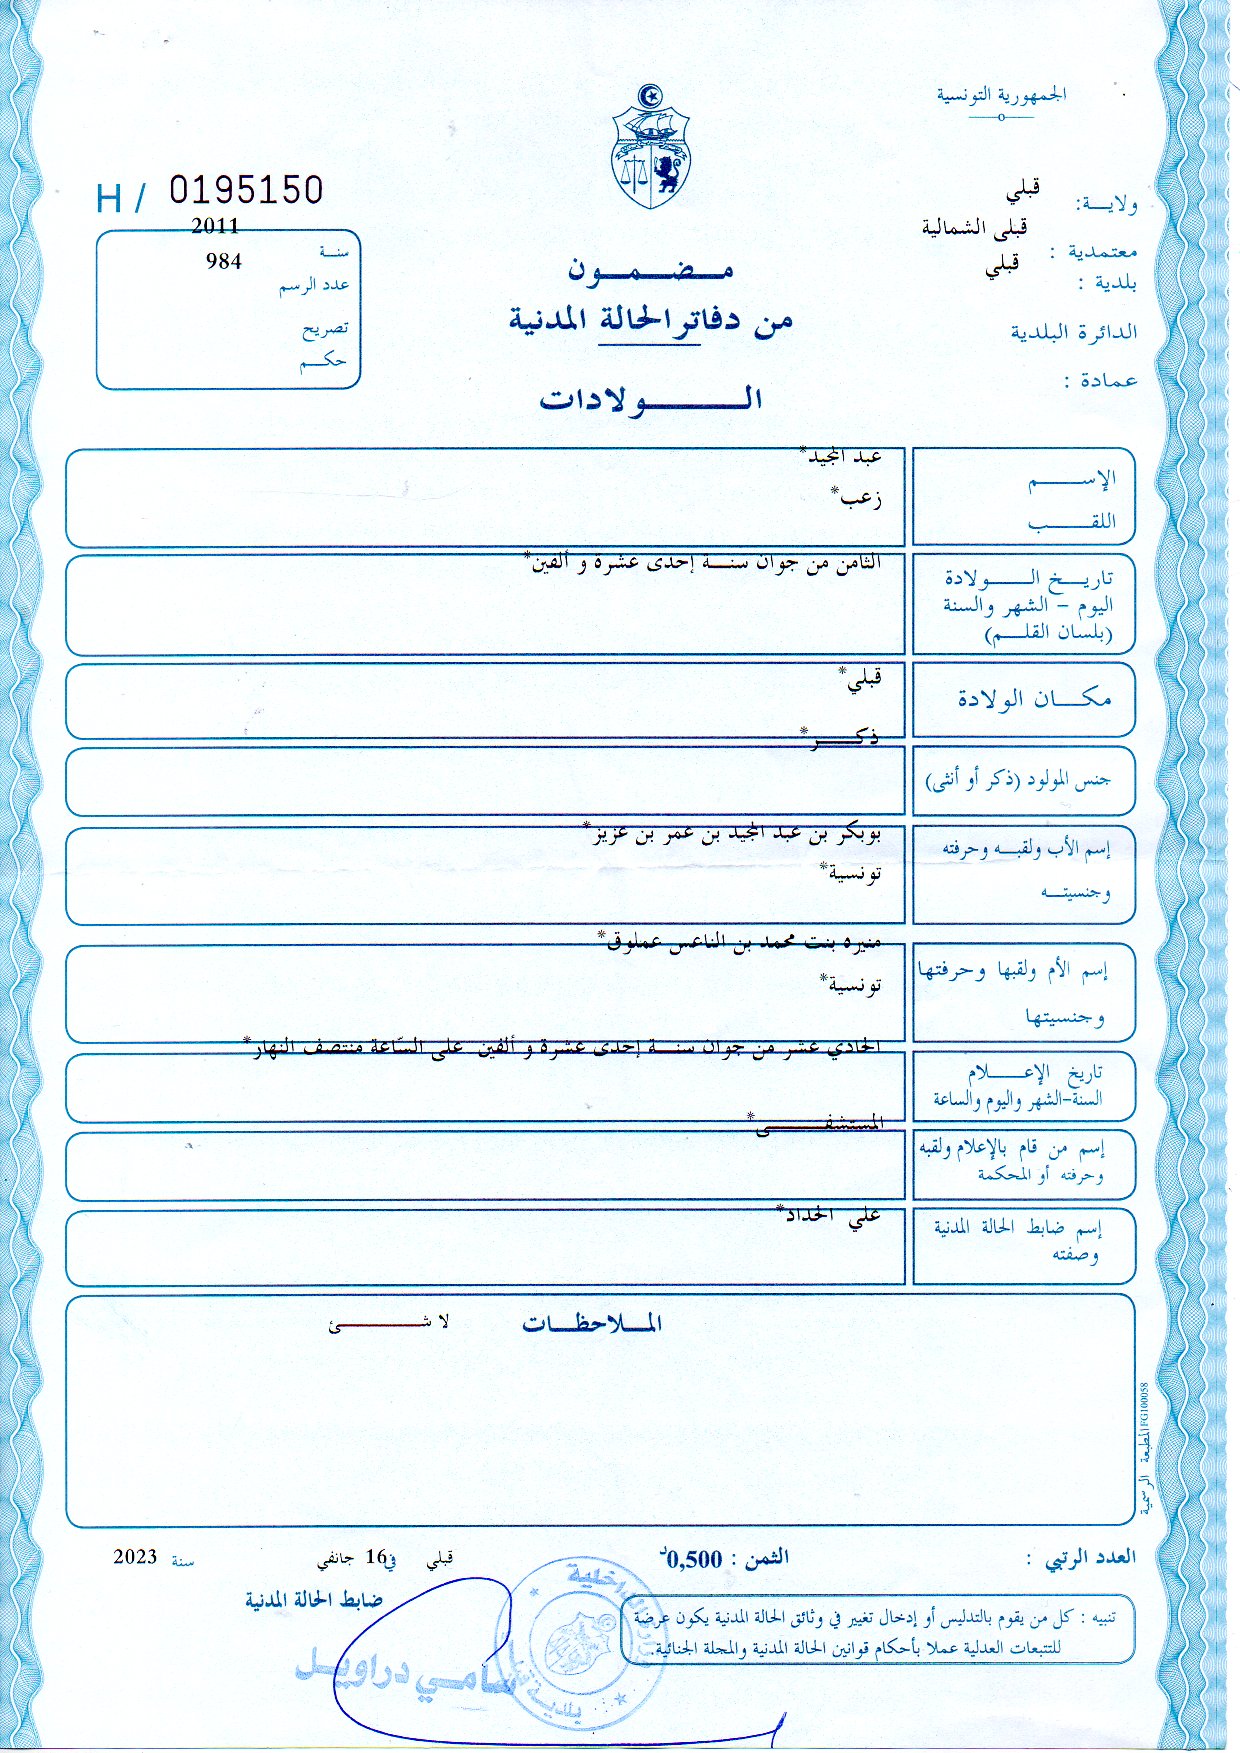 الجمهورية التونسية
ولايـــة: قبلي
معتمدية : قبلى الشمالية
بلدية : قبلي
الدائرة البلدية
عمادة :
H / 0195150
سنــة 2011
عدد الرسم 984
تصريح
حكــم
مــضــمــون
من دفاتر الحالة المدنية
الـــــولادات
الإســــم عبد المجيد*
اللقــــب زعب*
تاريــخ الـــــولادة الثامن من جوان سنــة إحدى عشرة و ألفين*
اليوم – الشهر والسنة
(بلسان القلــم)
مكــــان الولادة قبلي*
ذكـــــر*
جنس المولود (ذكر أو أنثى)
بوبكر بن عبد المجيد بن عمر بن عزيز*
إسم الأب ولقبــه وحرفته
تونسية*
وجنسيتــه
منيره بنت محمد بن الناعس عملوق*
إسم الأم ولقبها وحرفتها
تونسية*
وجنسيتها
الحادي عشر من جوان سنــة إحدى عشرة و ألفين على السّاعة منتصف النهار*
تاريخ الإعــــلام
السنة-الشهر واليوم والساعة
المستشفــــــى*
إسم من قام بالإعلام ولقبه
وحرفته أو المحكمة
علي الحداد*
إسم ضابط الحالة المدنية
وصفته
المــلاحظــات لا شــــــــئ
المطبعة الرسمية FG100058
العدد الرتبي :
الثمن : 0,500د
قبلي في16 جانفي سنة 2023
ضابط الحالة المدنية
سامــي دراويــل
تنبيه : كل من يقوم بالتدليس أو إدخال تغيير في وثائق الحالة المدنية يكون عرضة
للتتبعات العدلية عملا بأحكام قوانين الحالة المدنية والمجلة الجنائية.
الداخلية
بلدية